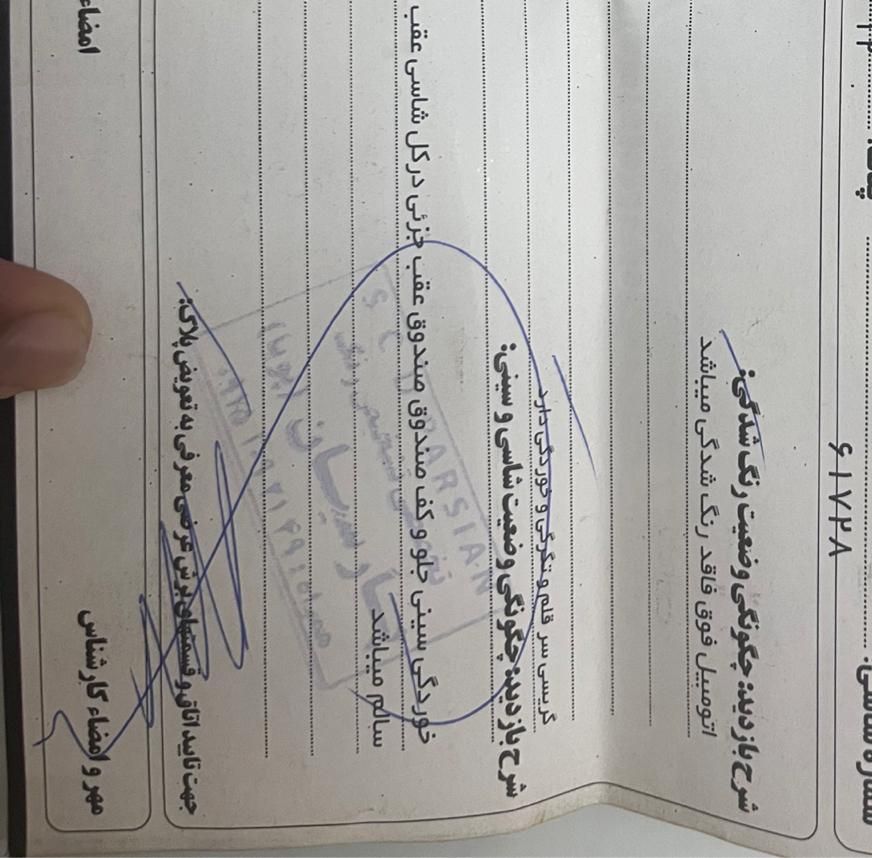 شماره شاسی:
۶۱۷۲۸
شرح بازدید: چگونگی وضعیت رنگ شدگی:
اتومبیل فوق فاقد رنگ شدگی میباشد
گریسی سر قلم و تگرگی و خوردگی دارد
شرح بازدید: چگونگی وضعیت شاسی و سینی:
خوردگی سینی جلو و کف صندوق صندوق عقب جزئی درکل شاسی عقب
سالم میباشد
PARSIAN
پارسیان
جهت تایید اتاق و قسمتهای برش عرضی معرفی به تعویض پلاک:
مهر و امضاء کارشناس
امضاء